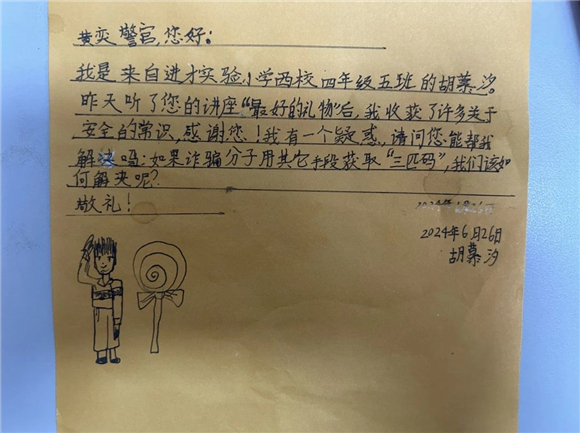 黄奕警官,您好:
我是来自进才实验小学西校四年级五班的胡慕汐。
昨天听了您的讲座“最好的礼物”后,我收获了许多关于
安全的常识,感谢您!我有一个疑惑,请问您能帮我
解决吗:如果诈骗分子用其它手段获取“三匹码”,我们该如
何解决呢?
敬礼!
2024年6月26日
胡慕汐